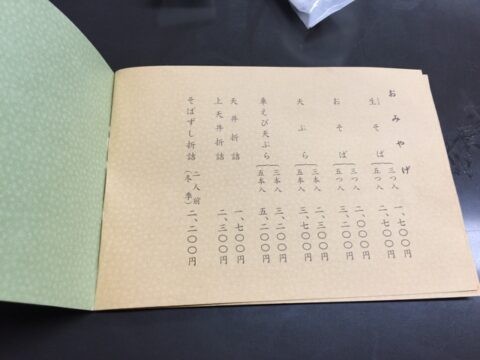 おみやげ
生そば 三つ入 一、七〇〇円
五つ入 二、七〇〇円
おそば 三つ入 二、〇〇〇円
五つ入 三、二〇〇円
天ぷら 三つ入 二、三〇〇円
五つ入 三、七〇〇円
車えび天ぷら 三本入 三、二〇〇円
五本入 五、二〇〇円
天丼折詰 一、七〇〇円
上天丼折詰 二、三〇〇円
そばずし折詰 二人前(冬季) 二、二〇〇円